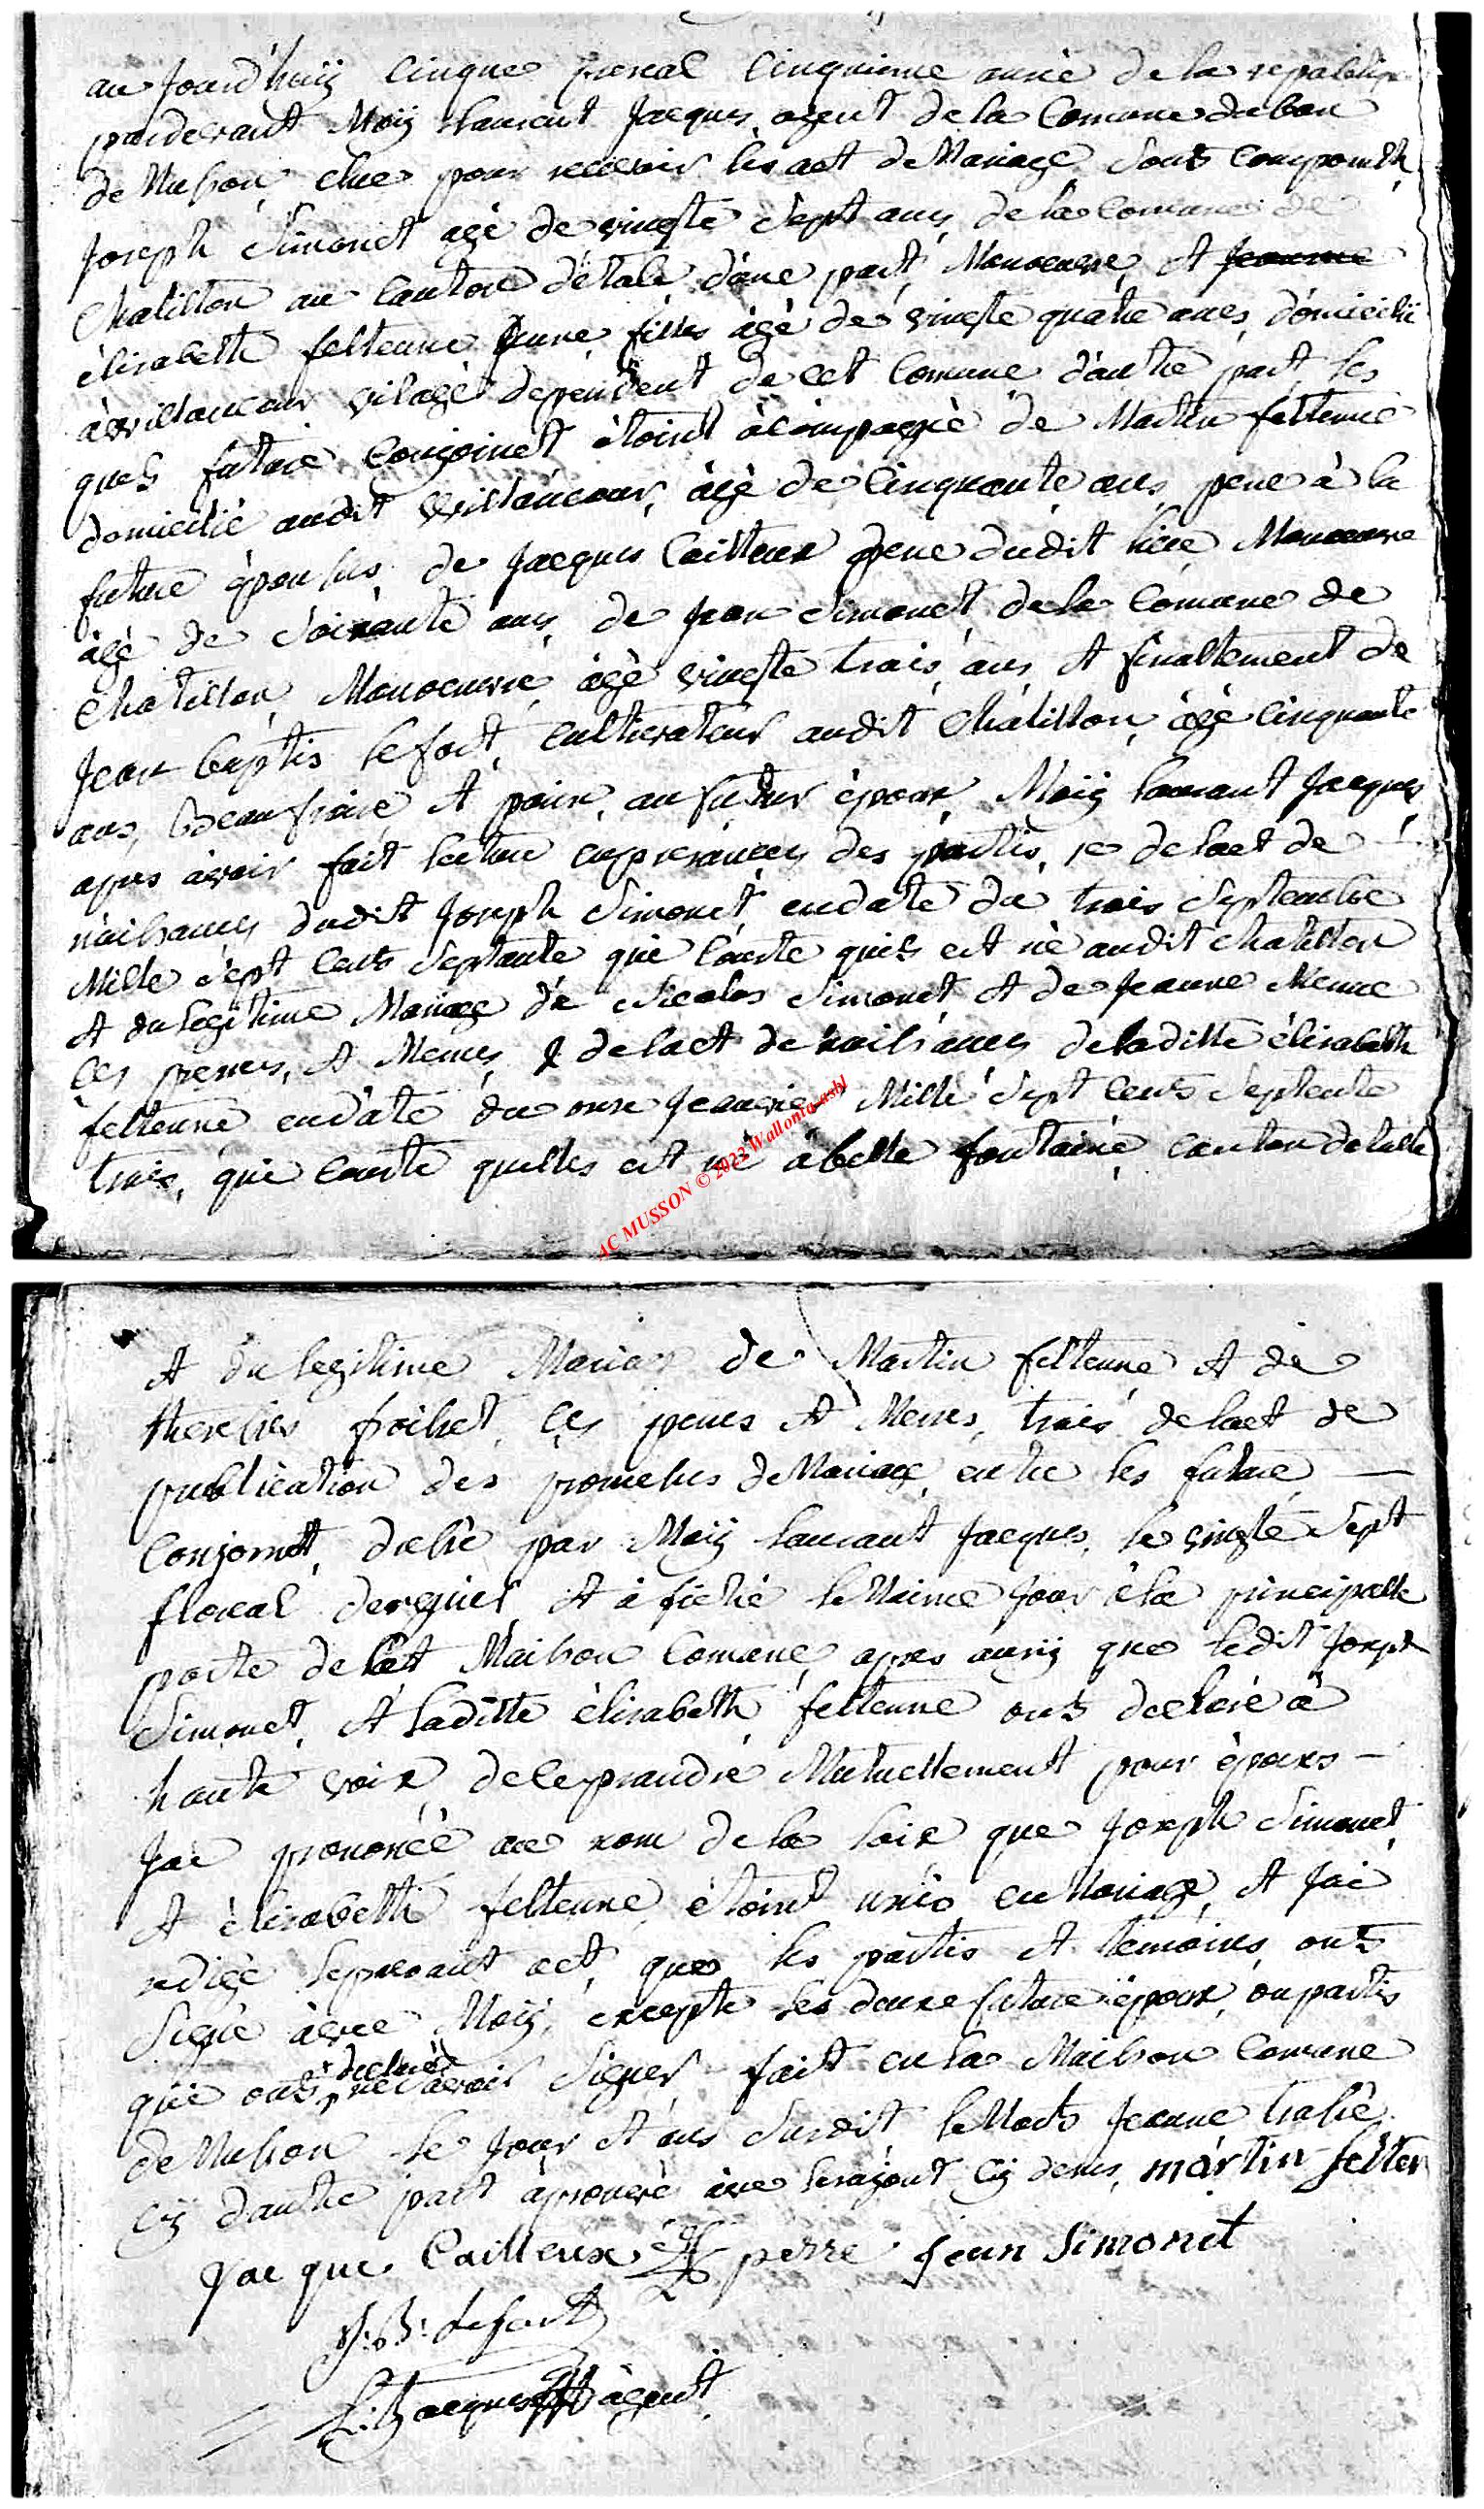 au Jourd'huij Cinque preral Cinquieme anné de la republiq
pardevant Moij laurent Jacques agent de la Comune du ban
de Musson, elue pour recevoir les act de Mariage Sonts comparuth
Joseph Simonet agé de vingte Sept ans, de la Comune de
Chatillon au Canton détale d'une part, Manoeuvre, et Jeanne
élisabeth feltenne Jeune filles agé de vingte quatre ans, domicilié
à Willancour vilage dependent de cet Comune d'autre part, les
quels future Conjoinct étoint acompagné de Martin feltenne
domicilié audit Willancour, agé de Cinquante ans, pere à la
future épouses, de Jacques Cailteux pere dudit lieu, Manoeuvre
agé de Soixante ans, de Jean Simonet de la Comune de
Chatillon, Manoeuvre, agé vingte trois ans, et finallement de
Jean baptis lefort, Cultivateur audit Chatillon, agé Cinquante
ans, beaufraire et parin, au futur époux, Moij laurant Jacques
apres avoir fait lecture enpresances des partis, 1o de lact de —
naissances dudit Joseph Simonet, endate du trois Septembre
Mille Sept Cents Septante qui Conste quils est né audit Chatillon
et du legitime Mariage de Nicolas Simonet et de Jeanne Menne
Ces peres, et Meres, 2 de lact de naissances de laditte élisabeth
feltenne endate du onze Jeanvier Mille Sept Cents Septente
trois, qui Conste quelles est né à belle fontaine, Canton detalle
AC MUSSON © 2022 Wallonia asbl
et du legitime Mariage de Martin feltenne et de
theresses froisset, Ces peres et Meres, trois de lact de
publication des promesses de Mariage entre les future —
Conjoinct, dressé par Moij laurant Jacques, le vingte Sept
floreal dernier, et afiché le Maime Jour à la principalle
porte de la dit Maison Comune, apres ausij que ledit Joseph
Simonet, et laditte élisabeth feltenne onts declaré à
haute voix de ceprandre Mutuellement pour époux —
Jai prononcé au nom de la loix que Joseph Simonet
et élisabeth feltenne étoint unis en Mariage, et Jai
redigé lepresant act, que les partis et temoins, onts
Signé avec Moij, excepté les deux future époux, ou partis
qui onts declaré ne Savoir Signer fait en la Maison Comune
de Musson le Jour et ans Surdit le Mots Jeanne trassé
Cij dautre part aprouvé avec lerajout Cij desus, martin felten
Jacque Cailteux perre Jean Simonet
J: B: Lefort
L: Jacques agent